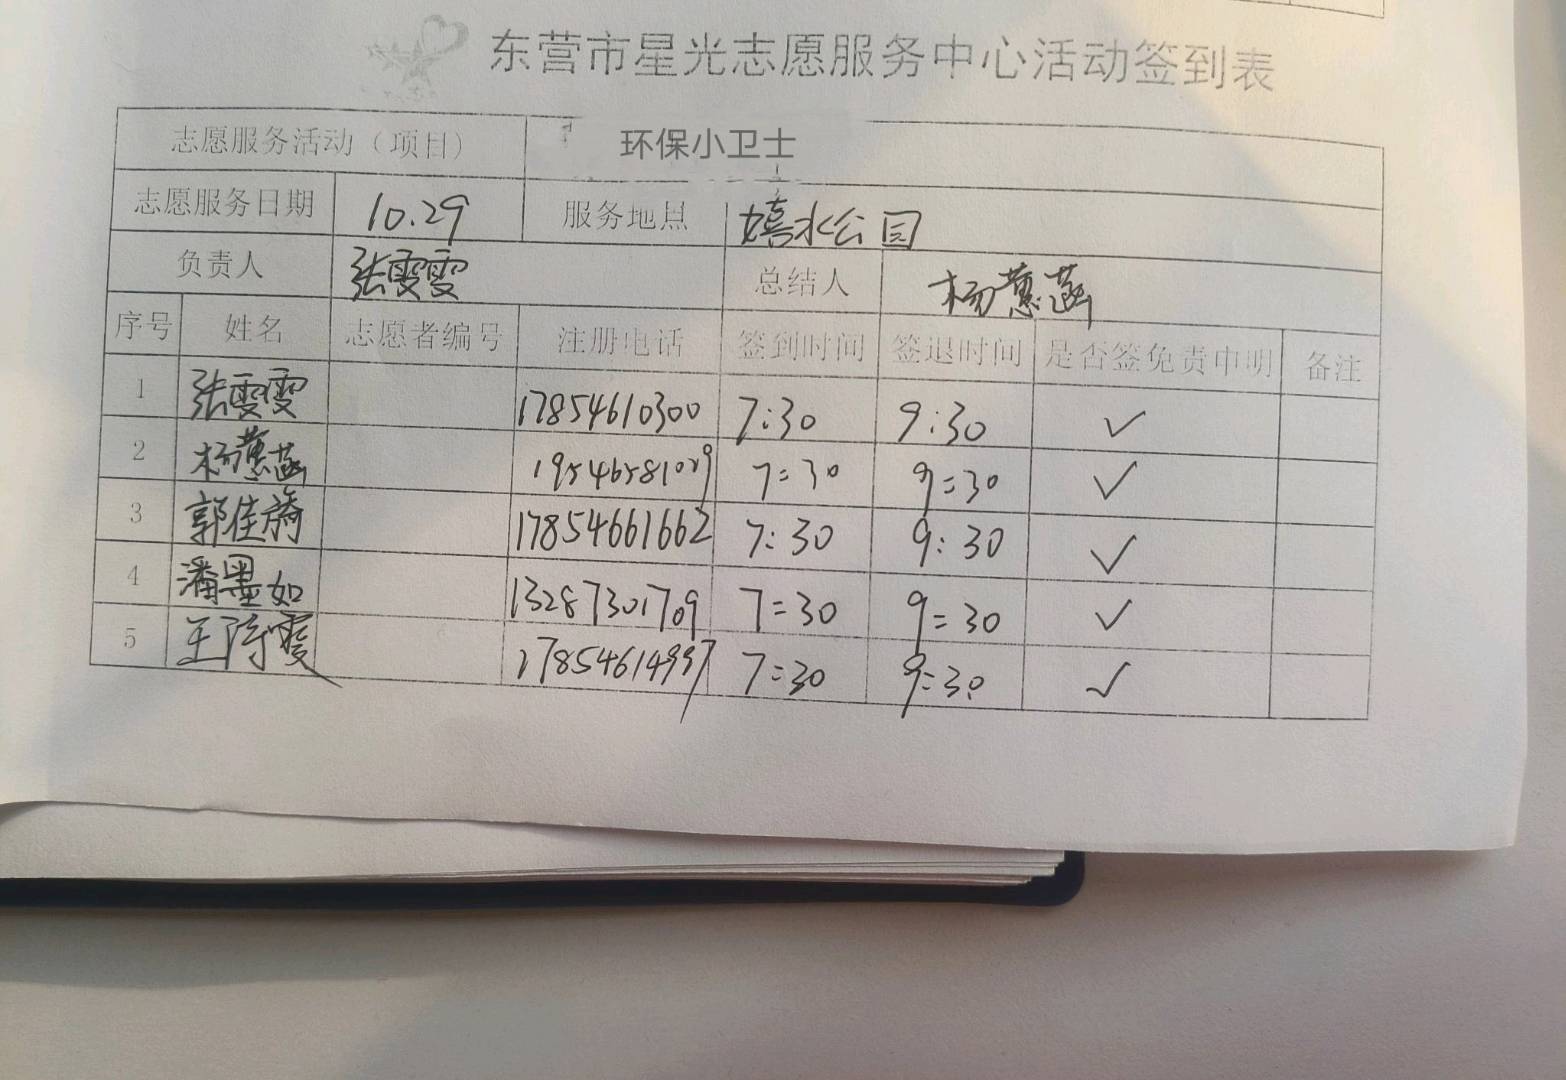 东营市星光志愿服务中心活动签到表
志愿服务活动（项目） 环保小卫士
志愿服务日期 10.29 服务地点 嬉水公园
负责人 张雯雯 总结人 杨蕙菡
序号 姓名 志愿者编号 注册电话 签到时间 签退时间 是否签免责申明 备注
1 张雯雯 17854610300 7:30 9:30 ✓
2 杨蕙菡 7:30 9:30 ✓
3 郭佳 17854661662 7:30 9:30 ✓
4 潘墨如 13287301709 7:30 9:30 ✓
5 王诗雯 17854614997 7:30 9:30 ✓